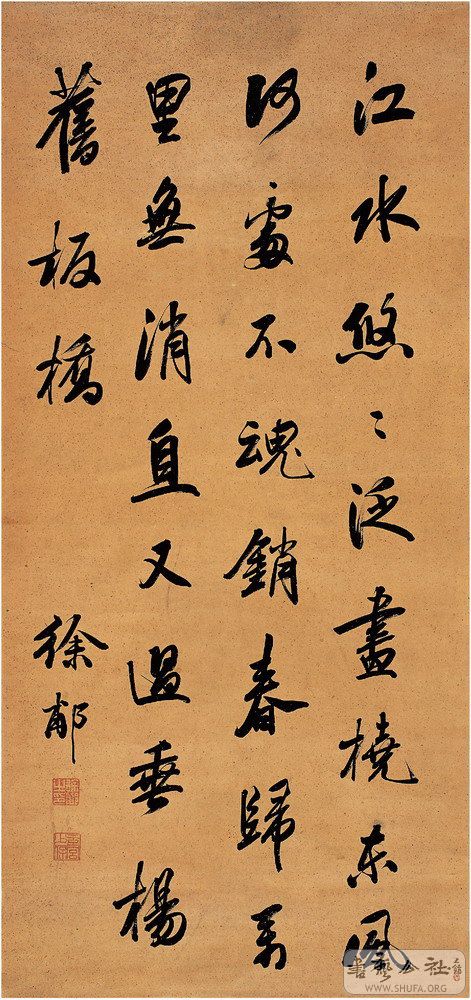 江水悠〻泛畫橈東風
何處不魂銷春歸萬
里無消息又過垂楊
舊板橋
徐郙
書藝公社
WWW.SHUFA.ORG